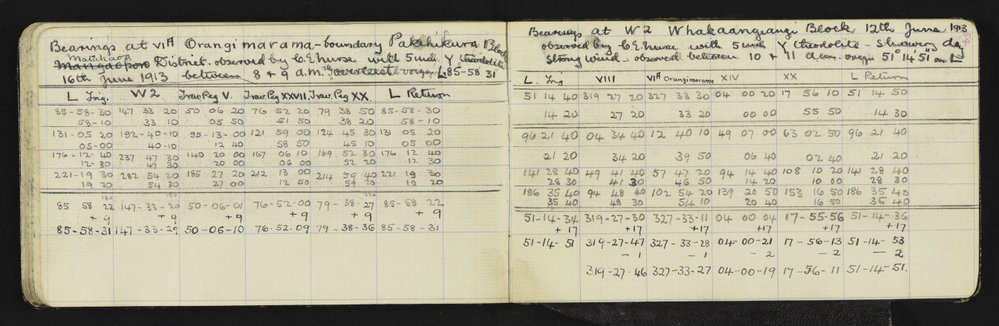 Bearings at VIA Orangimarama - boundary Pakihikura Block
Matakaoa
Mangaoporo District. observed by C.E. Nurse with 5 inch Y theodolite
16th June 1913 between 8 + 9 a.m. overcast origin L 85-58 31
L Trig. W2 Trav Peg V. Trav. Peg XXVII. Trav. Peg XX. L Return
85-58-30 147 33 20 50 06 20 76 52 20 79 38 50 85-58-30
58-10 33 10 05 50 51 50 38 20 58-10
131-05 20 192-40-10 95-13-00 121 59 00 124 45 30 131 05 20
05-00 40-10 12 40 58 50 45 10 05 00
176-12-40 237 47 30 140 20 00 167 06 10 169 52 30 176 12 40
12-30 47 30 20 00 06 00 52 20 12 30
221-19 30 282 54 20 185 27 20 212 13 00 214 59 40 221 19 30
19 20 54 30 27 00 12 50 59 30 19 20
85 58 22 147-33-20 50-06-01 76-52-00 79-38-27 85-58-22
+9 +9 +9 +9 +9 +9
85-58-31 147-33-29 50-06-10 76-52-09 79-38-36 85-58-31
Bearings at W2 Whakaangiangi Block 12th June 1913
observed by C.E. Nurse with 5 inch Y theodolite - showery day
Strong wind. observed between 10 + 11 a.m. origin 51° 14' 51" on L
L. Trig VIII VIA Orangimarama XIV XX L Return
51 14 40 319 27 20 327 33 30 04 00 20 17 56 10 51 14 50
14 20 27 20 33 20 00 00 55 50 14 30
96 21 40 04 34 40 12 40 10 49 07 00 63 02 50 96 21 40
21 20 34 20 39 50 06 40 02 40 21 20
141 28 40 49 41 40 57 47 20 94 14 40 108 10 20 141 28 40
28 30 41 30 46 50 14 20 10 00 28 30
186 35 40 94 48 40 102 54 20 139 20 50 153 16 50 186 35 40
35 40 48 30 54 10 20 40 16 50 35 40
51-14-34 319-27-30 327-33-11 04 00 04 17-55-56 51-14-36
+17 +17 +17 +17 +17 +17
51-14-51 319-27-47 327-33-28 04-00-21 17-56-13 51-14-53
-1 -1 -2 -2 -2
319-27-46 327-33-27 04-00-19 17-56-11 51-14-51.